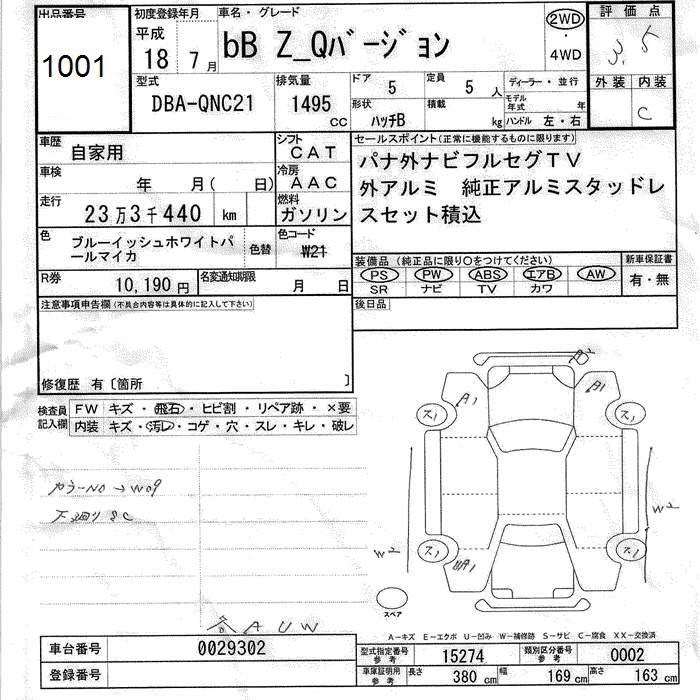 出品番号
1001
初度登録年月
平成
18 7 月
車名・グレード
bB Z_Qバージョン
2WD
・
4WD
評価点
3.5
外装 内装
C
型式
DBA-QNC21
排気量
1495
CC
ドア
5
定員
5 人
形状
ハッチB
積載
kg
ディーラー・並行
モデル年式 年
ハンドル 左・右
車歴
自家用
シフト
CAT
車検
年 月( 日)
冷房
AAC
走行
23万3千440 km
燃料
ガソリン
色
ブルーイッシュホワイトパ
ールマイカ
色替
色コード
W21
R券
10,190 円
名変通知期限
月 日
セールスポイント(正常に機能するものに限ります)
パナ外ナビフルセグTV
外アルミ 純正アルミスタッドレ
スセット積込
装備品 (純正品に限り○をつけてください)
PS PW ABS エアB AW
SR ナビ TV カワ
新車保証書
有・無
後日品
注意事項申告欄(不具合内容等は具体的に記入して下さい)
修復歴 有〔箇所 〕
検査員
記入欄
FW キズ・飛石・ヒビ割・リペア跡・×要
内装 キズ・汚レ・コゲ・穴・スレ・キレ・破レ
カラーNO→W09
下廻りSC
A1
A1
ス1
ス1
W2
W2
ス1
ス1
スペア
A U W
A-キズ E-エクボ U-凹み W-補修跡 S-サビ C-腐食 XX-交換済
車台番号
0029302
登録番号
型式指定番号
参考
15274
類別区分番号
参考
0002
車庫証明用
参考
長さ
380 cm
幅
169 cm
高さ
163 cm